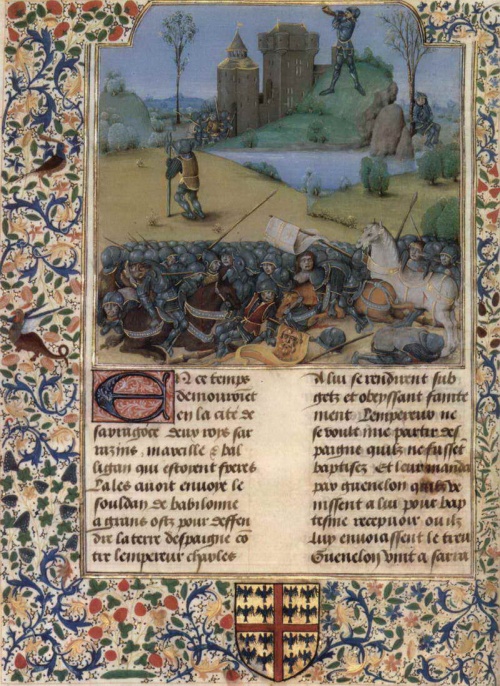 En ce temps
demouroiet
en la cite de
sarragoce deux roys sar
razins. marcille & bal
ligan qui estoient freres
Lales auoit enuoye le
souldan de babilonne
a grans ostz pour deffen
dre la terre despaigne co
tre lempereur charles
A lui se rendirent sub
getz et obeyssant fainte
ment Lempereur ne
se voult mie partir des
paigne quilz ne fussent
baptisez Et leur manda
par guenelon quilz ve
nissent a lui pour bap
tesme receuoir ou ilz
luy enuoiassent le treu
Guenelon vint a sarra